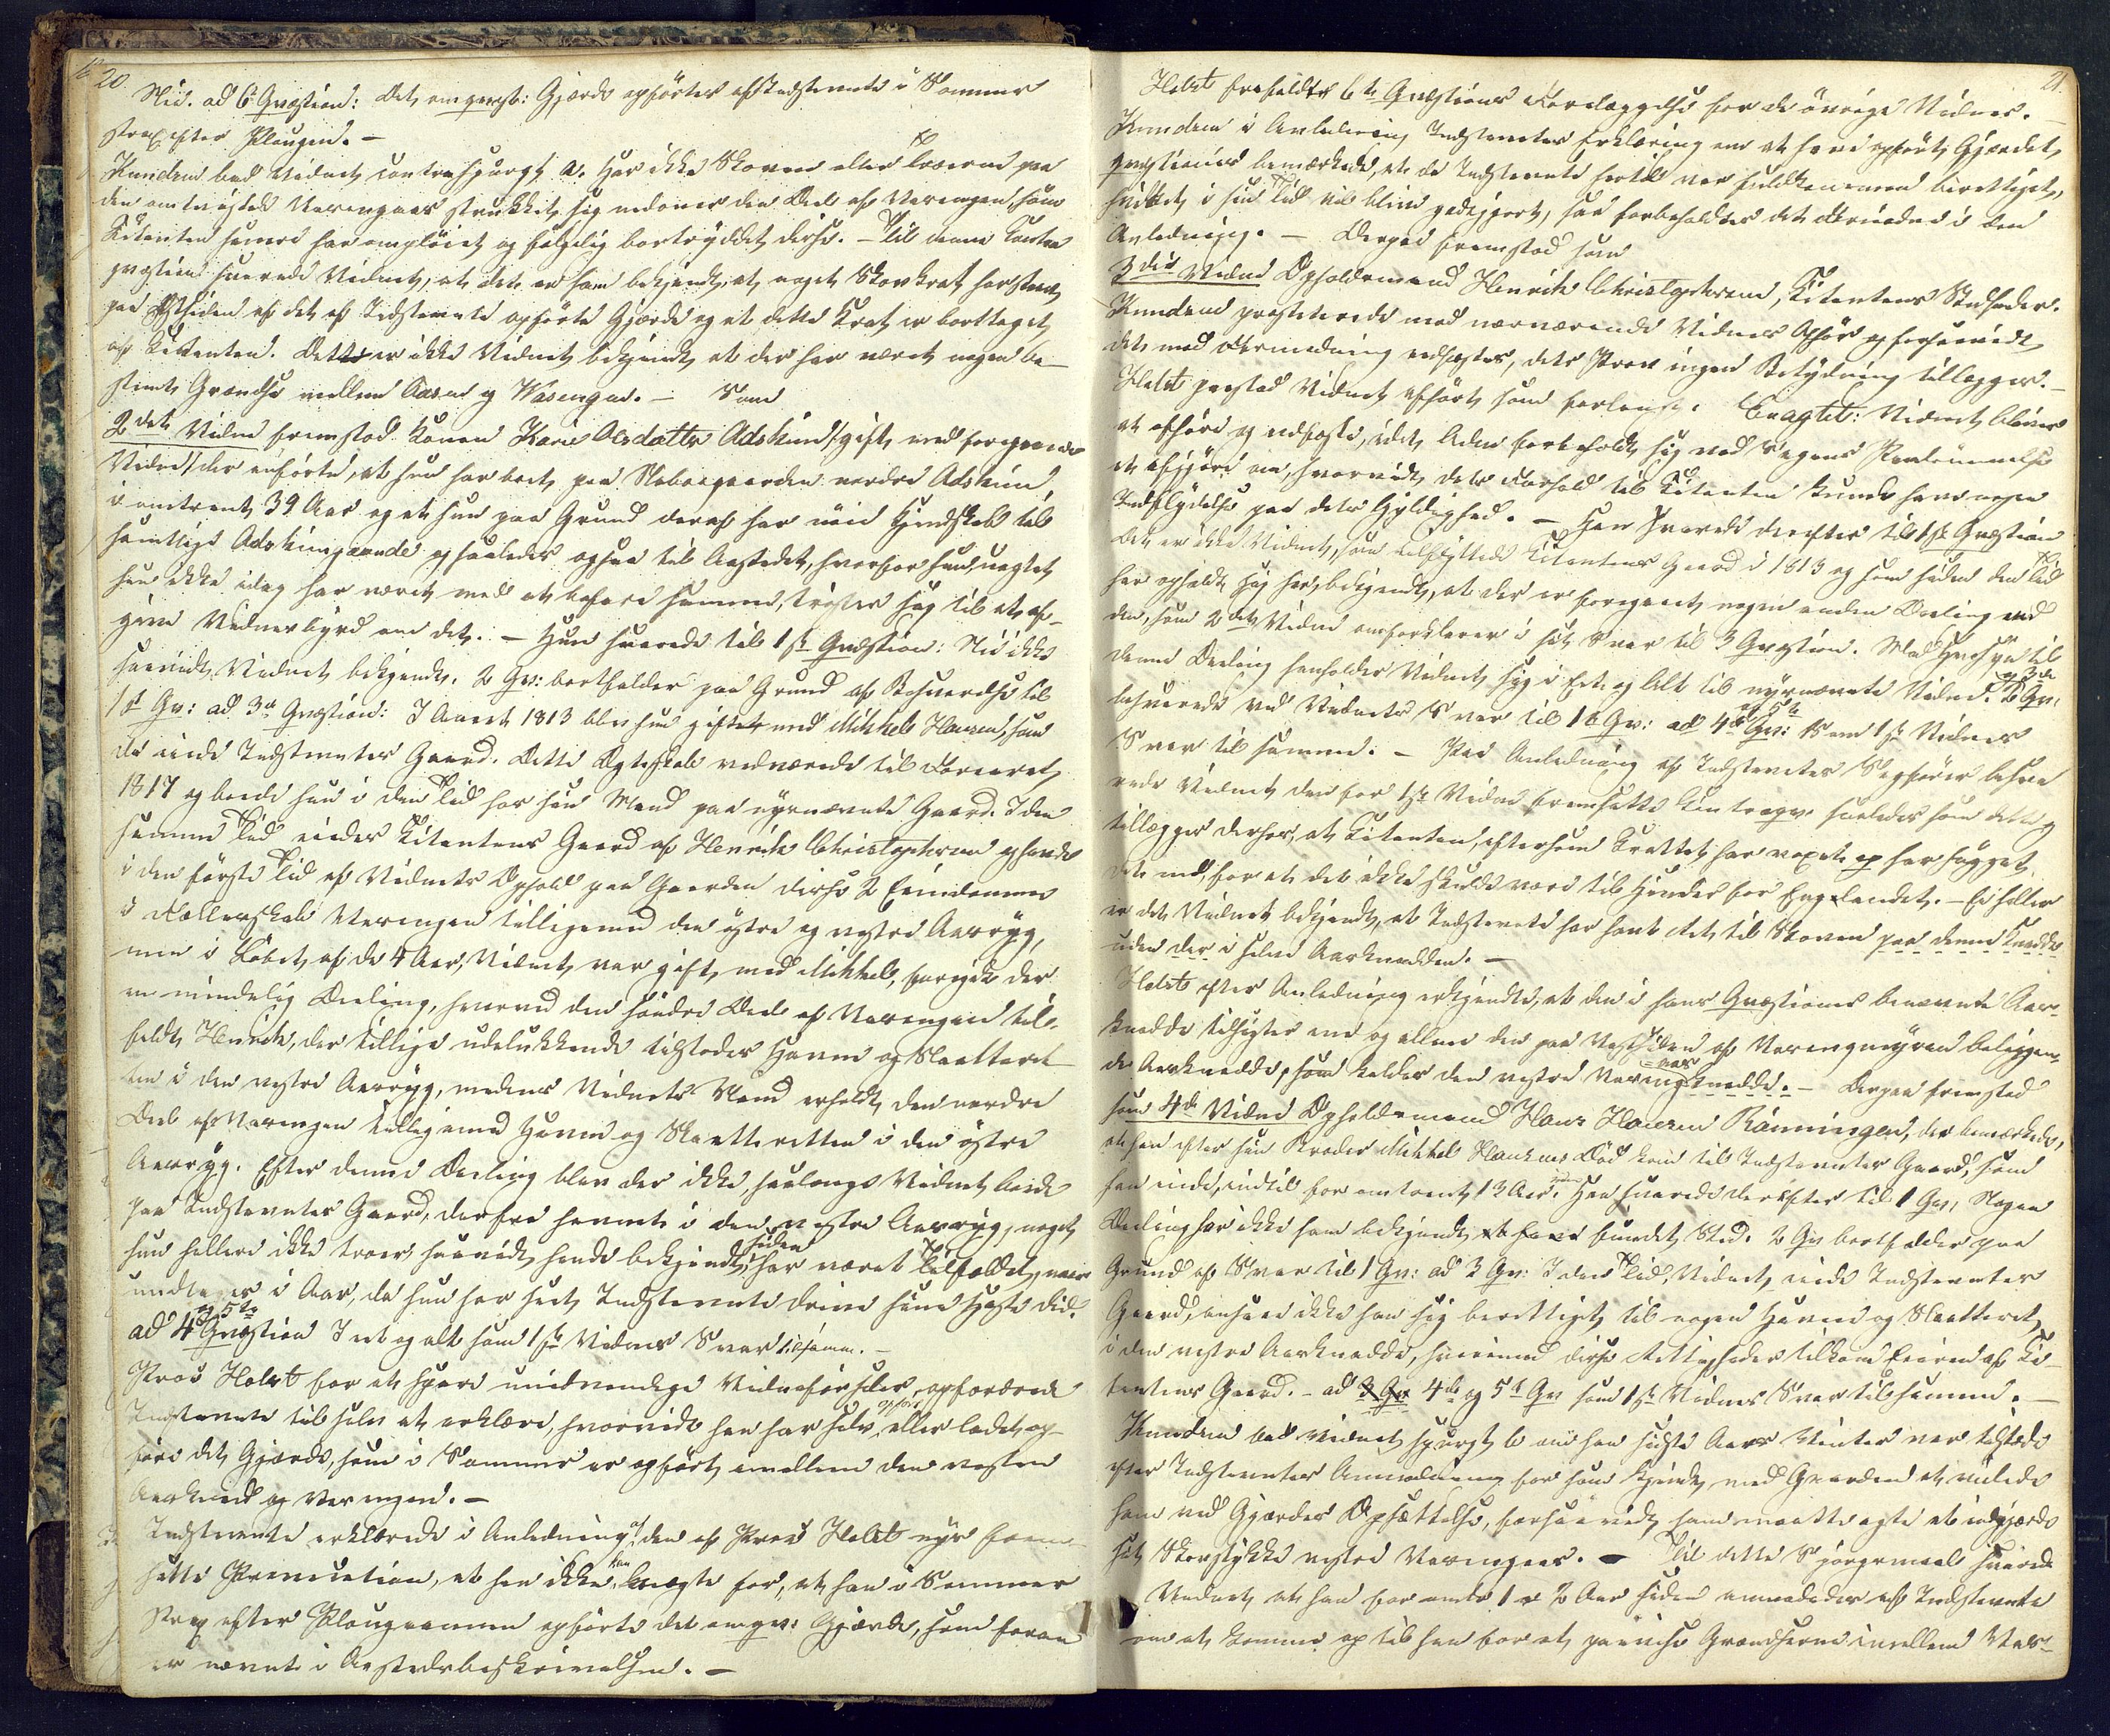 20.
Nei. ad 6 Qvæstion: Det omspurgte Gjærde opførtes af Indstevnte i Sommer
strax efter Plougen. –
Knudsen bad Vidnet contraspurgt a. Har ikke Skoven eller Træerne paa
den omtvistede Varengaas strukket sig nedover den Deel af Varengen, som
Citanten senere har opløiet og følgelig bortryddet disse. – Til denne Contra
qvæstion svarede Vidnet, at det er ham bekjendt, at noget Skovkrat har staaet
paa Østsiden af det af Indstevnte opførte Gjærde og at dette Krat er borttaget
af Citanten. Det er ikke Vidnet bekjendt at der har været nogen be-
stemt Grændse mellem Aasen og Vasengen. – Som
2det Vidne fremstod Konen Karie Olsdatter Adskim /: gift med foregaaende
Vidne :/ der anførte, at hun har boet paa Nabogaarden nordre Adskim
i omtrent 39 Aar og at hun paa Grund deraf har nøie Kjendskab til
samtlige Adskimgaarde og saaledes ogsaa til Aastedet, hvorfor hun, uagtet
hun ikke idag har været med at befare samme, trøster sig til at af-
give Vidnesbyrd om det. – Hun svarede til 1ste Qvæstion: Nei ikke
saavidt Vidnet bekjendt. 2 Qv: bortfalder paa Grund af Besvarelse til
1st Qv: ad 3die Qvæstion: I Aaret 1813 blev hun gift med Mikkel Hansen, som
da eiede Indstevntes Gaard. Dette Ægteskab vedvarede til Foraaret
1817 og boede hun i den Tid hos sin Mand paa nysnævnte Gaard. I den
samme Tid eiedes Citantens Gaard af Henrik Christophersen og havde
i den første Tid af Vidnets Ophold paa Gaarden disse 2 Eiendomme
i Fællesskab Varengen tilligemed den østre og vestre Aasryg,
men i Løbet af de 4 Aar, Vidnet var gift med Mikkel, foregik der
en mindelig Deeling, hvorved den søndre Deel af Varengen til-
faldt Henrik, der tillige udelukkende tilstodes Havn og Slaatteret-
ten i den vestre Aasryg, medens Vidnets Mand erholdt den nordre
Deel af Varengen tilligemed Havn og Slaatteretten i den østre
Aasryg. Efter denne Deeling blev der ikke, saalænge Vidnet boede
paa Indstevntes Gaard, derfra havnet i den vestre Aasryg, noget
hun hellere ikke troer saavidt hende bekjendt, siden har været Tilfældet, naar
undtages i Aar, da hun har seet Indstevnte drive sine Heste did.
ad 4 og 5te Qvæstion I eet og alt som 1ste Vidnes Svar til samme. –
Prov. Holst for at spare unødvendige Vidneførsler, opfordrede
Indstevnte til selv at erklære, hvorvidt han har selv opført eller ladet op-
føre det Gjærde, som i Sommer er opført imellem den vestre
Aasknod og Varengen. –
Indstevnte erklærede i Anledning af den af Prov. Holst nys frem-
satte Provocation, at han ikke kan benægte for, at han i Sommer
strax efter Plougonnen opførte det omqv: Gjærde, som foran
er nævnt i Aastedsbeskrivelsen. –
21.
Holst frafaldt 6te Qvæstions Forelæggelse for de øvrige Vidner. –
Knudsen i Anledning Indstevntes Erklæring om at have opført Gjærdet
qvæstionis bemærkede, at da Indstevnte hertil var fuldkommen berettiget,
hvilket i sin Tid vil blive godtgjort, saa forbeholdtes det Fornødne i den
Anledning. – Derpaa fremstod som
3die Vidne Opholdsmand Henrik Christophersen, Citantens Stedfader.
Knudsen protesterede mod nærværende Vidnes Afhør og forsaavidt
det mod Formodning edfæstes, dets Prov ingen Betydning tillægges. –
Holst paastod Vidnet afhørt som forlangt. Eragtet: Vidnet bliver
at afhøre og edfæste, idet Retten forbeholdt sig ved Sagens Paakjendelse
at afgjøre om, hvorvidt dets Forhold til Citanten kunde have nogen
Indflydelse paa dets Gyldighed. – Han svarede derefter til 1ste Qvæstion
det er ikke Vidnet, som tilflyttede Citantens Gaard i 1813 og som siden den Tid
har opholdt sig her, bekjendt, at der er foregaaet nogen anden Deeling end
den, som 2det Vidne omforklarer i sit Svar til 3 Qvæstion. Med Hensyn til
denne Deeling henholder Vidnet sig i Eet og Alt til nysnævnte Vidne. 2 og 3die Qv:
besvarede ved Vidnets Svar til 1ste Qv: ad 4de og 5te Qv: Som 1ste Vidnes
Svar til samme. – Paa Anledning af Indstevntes Sagfører besva
rede Vidnet den for 1ste Vidne fremsatte Contraqv. saaledes som dette og
tillægger derhos, at Citanten, eftersom Krattet har voxet op har hugget
det ned, for at det ikke skulde være til Hinder for Englandet. – Ei heller
er det Vidnet bekjendt, at Indstevnte har havt Ret til Skoven paa denne Knodde
uden der i selve Aasknodden. –
Holst efter Anledning erkjendte, at den i hans Qvæstioner benævnte Aas-
knodde tilsigter ene og allene den paa Vestsiden af Varengmyren beliggen-
de Aasknodde, som kaldes den vestre Varengaasknodde. – Derpaa fremstod
som 4de Vidne Opholdsmand Hans Hansen Rønningen, der bemærkede,
at han efter sin Broder Mikkel Hansens Død kom til Indstevntes Gaard, som
han eiede, indtil for omtrent 13 Aar siden. Han svarede derefter til 1 Qv: Nogen
Deeling har ikke ham bekjendt fundet Sted. 2 Qv bortfalder paa
Grund af Svar til 1 Qv: ad 3 Qv: I den Tid, Vidnet eiede Indstevntes
Gaard, ansaae ikke han sig berettiget til nogen Havn og Slaatteret
i den vestre Aasknodde, hvorimod disse Rettigheder tilkom Eieren af Ci-
tantens Gaard. – ad 4de og 5t Qv som 1ste Vidnes Svar til samme. –
Knudsen bad Vidnet spurgt b om han sidste Aars Winter var tilstede
efter Indstevntes Anmodning for som kjendt med Gaarden at veilede
ham ved Gjærdes Opsættelse, forsaavidt ham maatte agte at indgjærde
sit Skovstykke vestre Varengaas. – Til dette Spørgsmaal svarede
Vidnet at han for omtr 1 a 2 Aar siden anmodedes af Indstevnte
om at komme op til ham for at paavise Grændserne imellem Var-